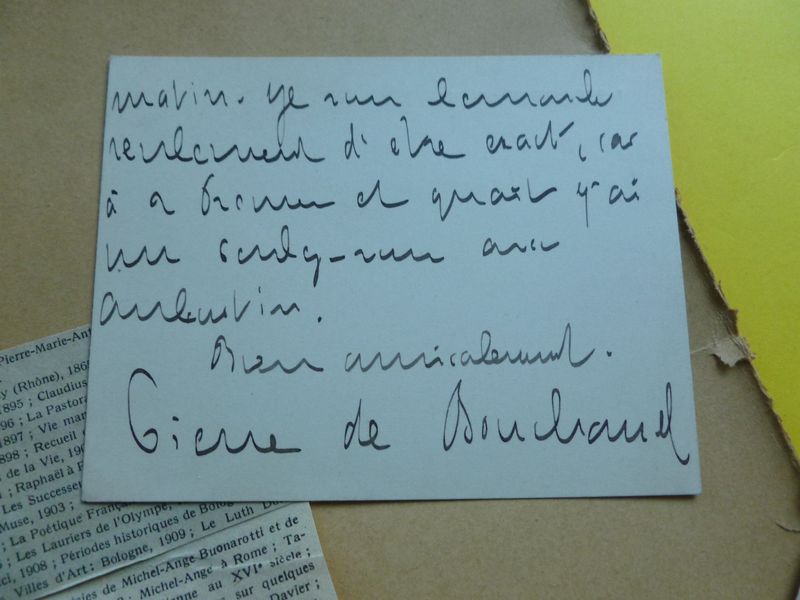 matin. Je vous demande
seulement d'être exact, car
à 2 heures et quart j'ai
un rendez-vous avec
Bien amicalement.
Pierre de Bouchaud
Pierre-Marie-Ant
y (Rhône), 186
1895 ; Claudius
96 ; La Pastora
1897 ; Vie man
898 ; Recueil
de la Vie, 190
; Raphaël à
Les Successeu
Muse, 1903 ;
; La Poétique Franç
; Les Lauriers de l'Olympe,
ci, 1908 ; Périodes historiques de Bolog
Villes d'Art : Bologne, 1909 ; Le Luth
sies de Michel-Ange Buonarotti et de
; Michel-Ange à Rome ; Ta-
enne au XVIe siècle ;
sur quelques
Davier ;